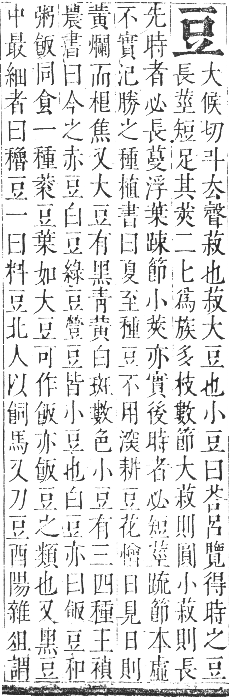 豆
大候切斗去聲菽也菽大豆也小豆曰荅呂覽得時之豆
長莖短足其莢二七爲族多枝數節大菽則圓小菽則長
先時者必長蔓浮葉疎節小莢亦實後時者必短莖疏節本虛
不實氾勝之種植書曰夏至種豆不用深耕豆花憎日見日則
黄爛而根焦又大豆有黑青黄白斑數色小豆有三四種王禎
農書曰今之赤豆白豆綠豆豆皆小豆也白豆亦曰飯豆和
粥飯同食一種豆葉如大豆可作飯亦飯豆之類也又黑豆
中最細者曰穭豆一曰料豆北人以飼馬又刀豆酉陽雜俎謂